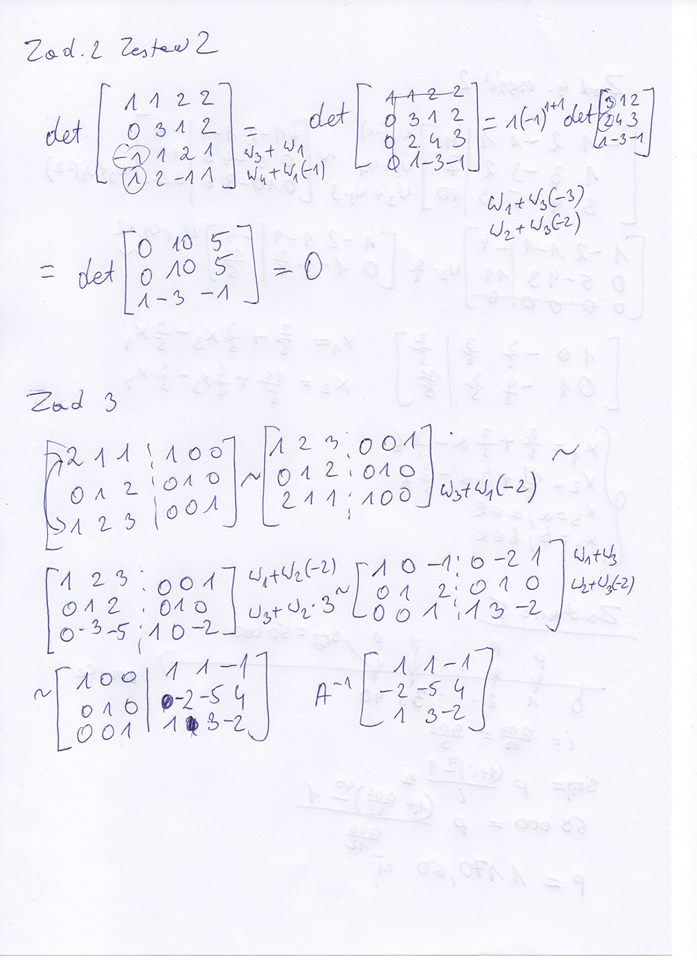 Zad. 2 Zestaw 2
det [ 1 1 2 2 ; 0 3 1 2 ; -1 1 2 1 ; 1 2 -1 1 ] = w3 + w1 w4 + w1(-1) det [ 1 1 2 2 ; 0 3 1 2 ; 0 2 4 3 ; 0 1 -3 -1 ] = 1(-1)^1+1 det [ 3 1 2 ; 2 4 3 ; 1 -3 -1 ]
w1 + w3(-3)
w2 + w3(-2)
= det [ 0 10 5 ; 0 10 5 ; 1 -3 -1 ] = 0
Zad 3
[ 2 1 1 | 1 0 0 ; 0 1 2 | 0 1 0 ; 1 2 3 | 0 0 1 ] ~ [ 1 2 3 | 0 0 1 ; 0 1 2 | 0 1 0 ; 2 1 1 | 1 0 0 ] w3 + w1(-2) ~
[ 1 2 3 | 0 0 1 ; 0 1 2 | 0 1 0 ; 0 -3 -5 | 1 0 -2 ] w1 + w2(-2) w3 + w2 · 3 ~ [ 1 0 -1 | 0 -2 1 ; 0 1 2 | 0 1 0 ; 0 0 1 | 1 3 -2 ] w1 + w3 w2 + w3(-2)
~ [ 1 0 0 | 1 1 -1 ; 0 1 0 | -2 -5 4 ; 0 0 1 | 1 3 -2 ] A^-1 [ 1 1 -1 ; -2 -5 4 ; 1 3 -2 ]